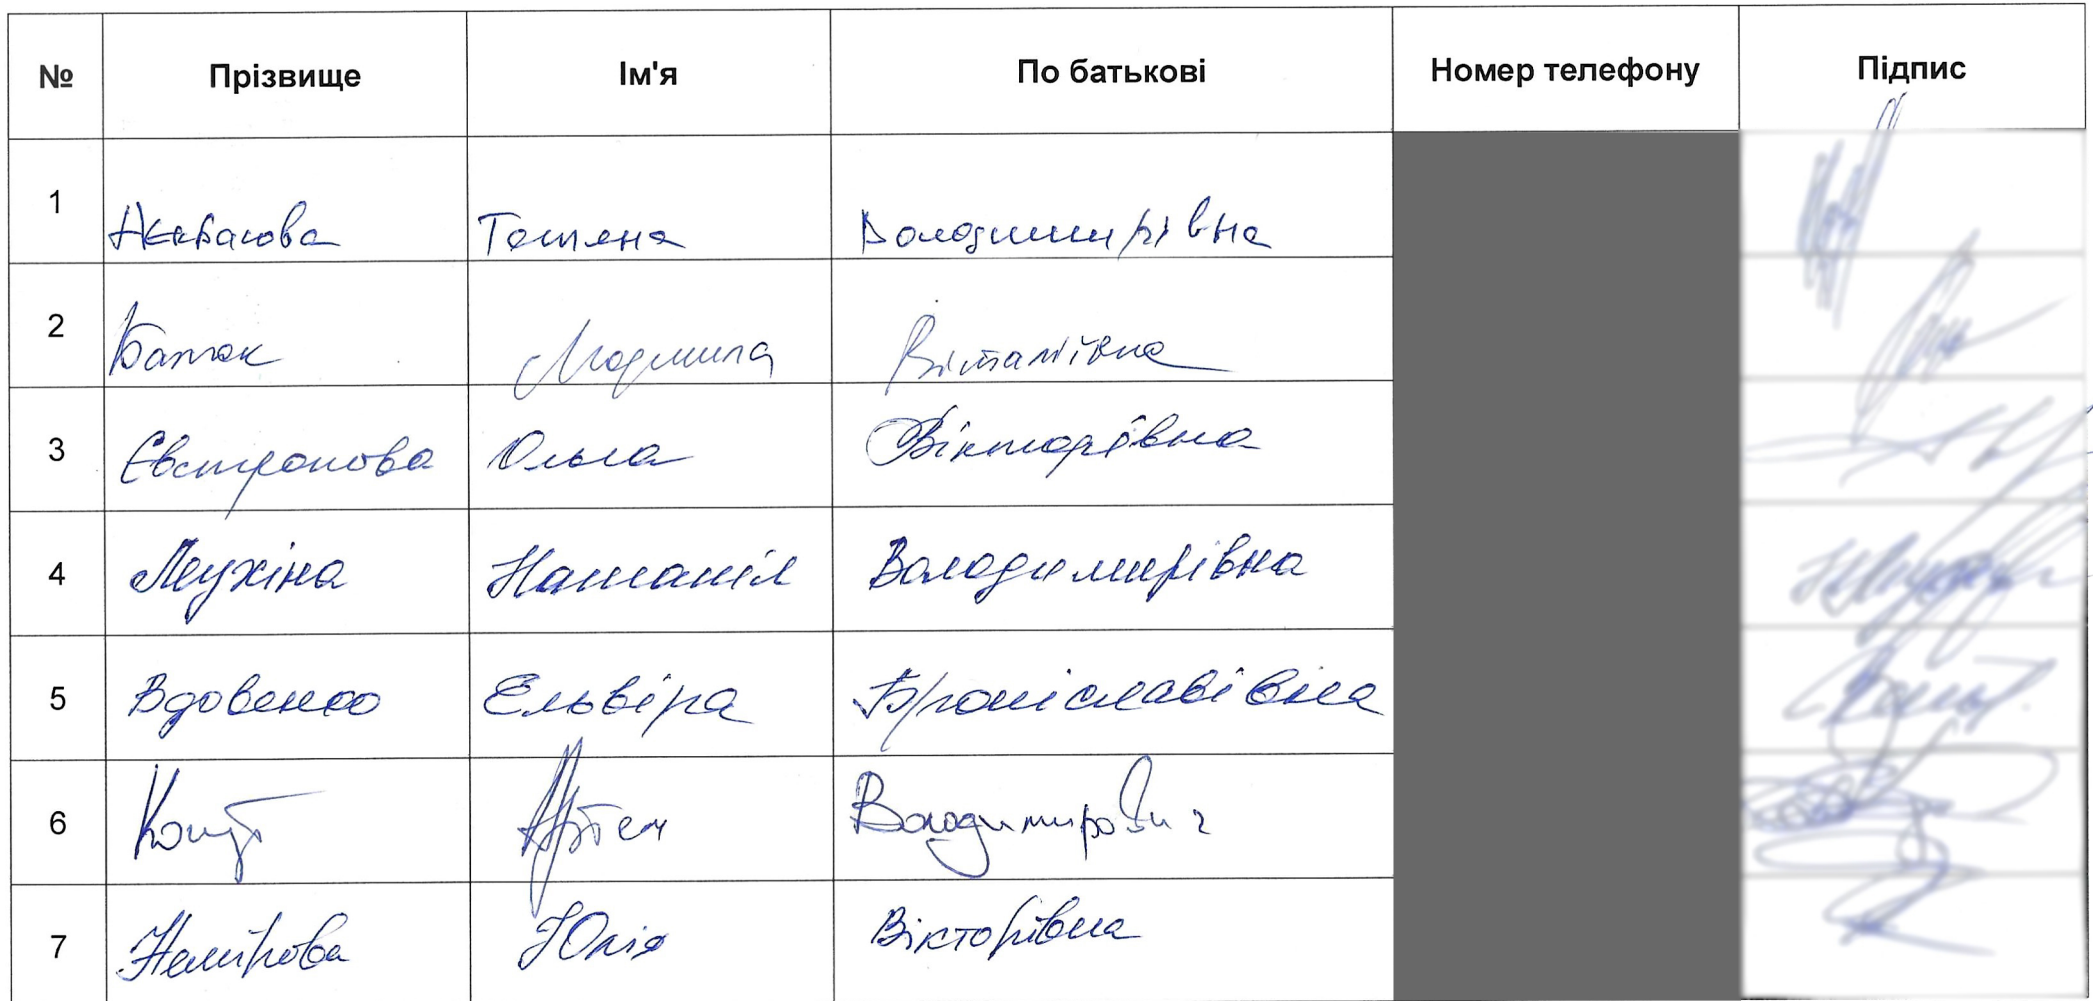 № Прізвище Ім'я По батькові Номер телефону Підпис
1 Тетяна Володимирівна
2 Людмила Віталіївна
3 Євстропова Ольга Вікторівна
4 Мухіна Наталія Володимирівна
5 Вдовенко Ельвіра Броніславівна
6 Артем Володимирович
7 Немірова Юлія Вікторівна